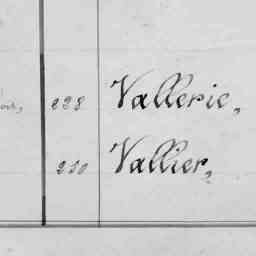 228 Vallerie,
210 Vallier,